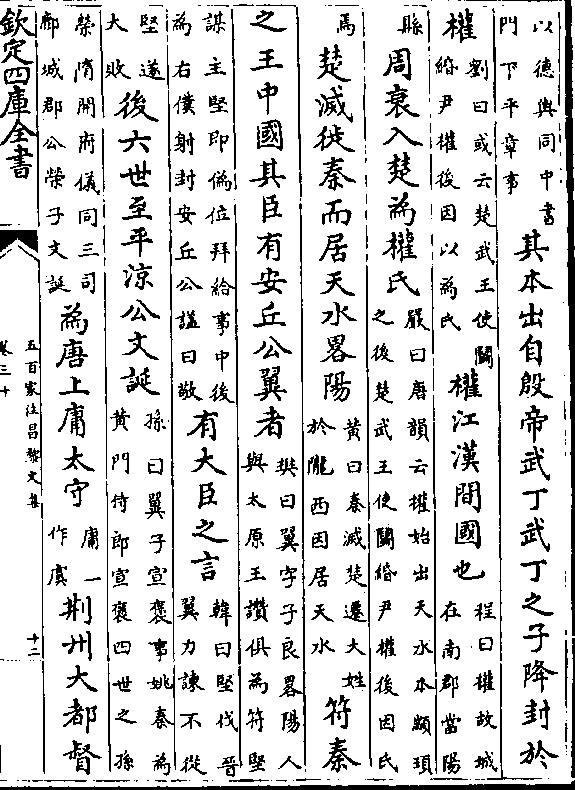 以德輿同中書
門下平章事
其本出自殷帝武丁武丁之子降封於
權
劉曰或云楚武王使鬬
緡尹權後因以為氏
權江漢間國也
程曰權故城
在南郡當陽
縣
周衰入楚為權氏
嚴曰唐韻云權始出天水本顓頊
之後楚武王使鬬緡尹權後因氏
焉
楚滅徙秦而居天水畧陽
黄曰秦滅楚遷大姓
於隴西因居天水
符秦
之王中國其臣有安丘公翼者
樊曰翼字子良畧陽人
與太原王讚俱為符堅
謀主堅即偽位拜給事中後
為右僕射封安丘公諡曰敬
有大臣之言
韓曰堅伐晉
翼力諫不從
堅遂
大敗
後六世至平涼公文誕
孫曰翼子宣褒事姚秦為
黄門侍郎宣褒四世之孫
榮隋開府儀同三司
郿城郡公榮子文誕
為唐上庸太守
庸一
作虞
荆州大都督
欽定四庫全書
五百家注昌黎文集
卷三十
十二